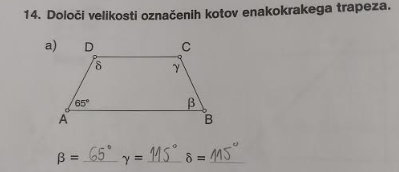 14. Določi velikosti označenih kotov enakokrakega trapeza.
a) D C
δ γ
65° β
A B
β = 65° γ = 115° δ = 115°